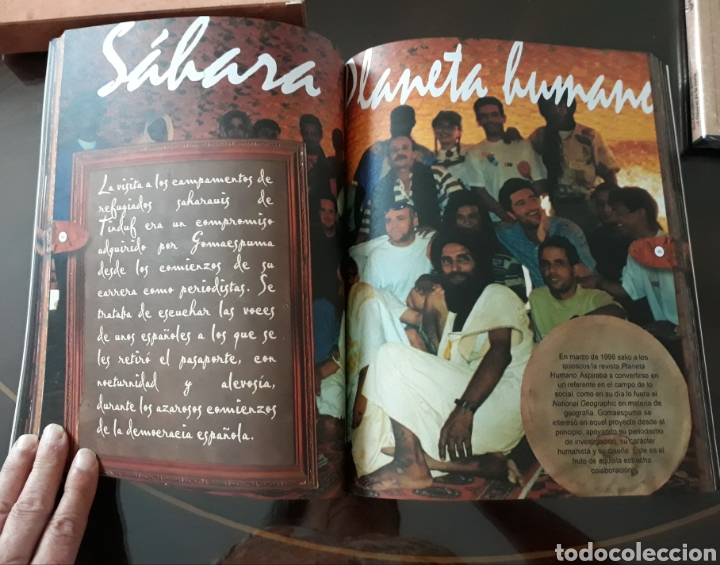 Sáhara
Planeta humano
La visita a los campamentos de
refugiados saharauis de
Tinduf era un compromiso
adquirido por Gomaespuma
desde los comienzos de su
carrera como periodistas. Se
trataba de escuchar las voces
de unos españoles a los que se
les retiró el pasaporte, con
nocturnidad y alevosía,
durante los azarosos comienzos
de la democracia española.
En marzo de 1998 salió a los
quioscos la revista Planeta
Humano. Aspiraba a convertirse en
un referente en el campo de lo
social, como en su día lo fuera el
National Geographic en materia de
geografía. Gomaespuma se
interesó en aquel proyecto desde el
principio, apoyando su periodismo
de investigación, su carácter
humanista y su diseño. Éste es el
fruto de aquella estrecha
colaboración.
todocoleccion.net